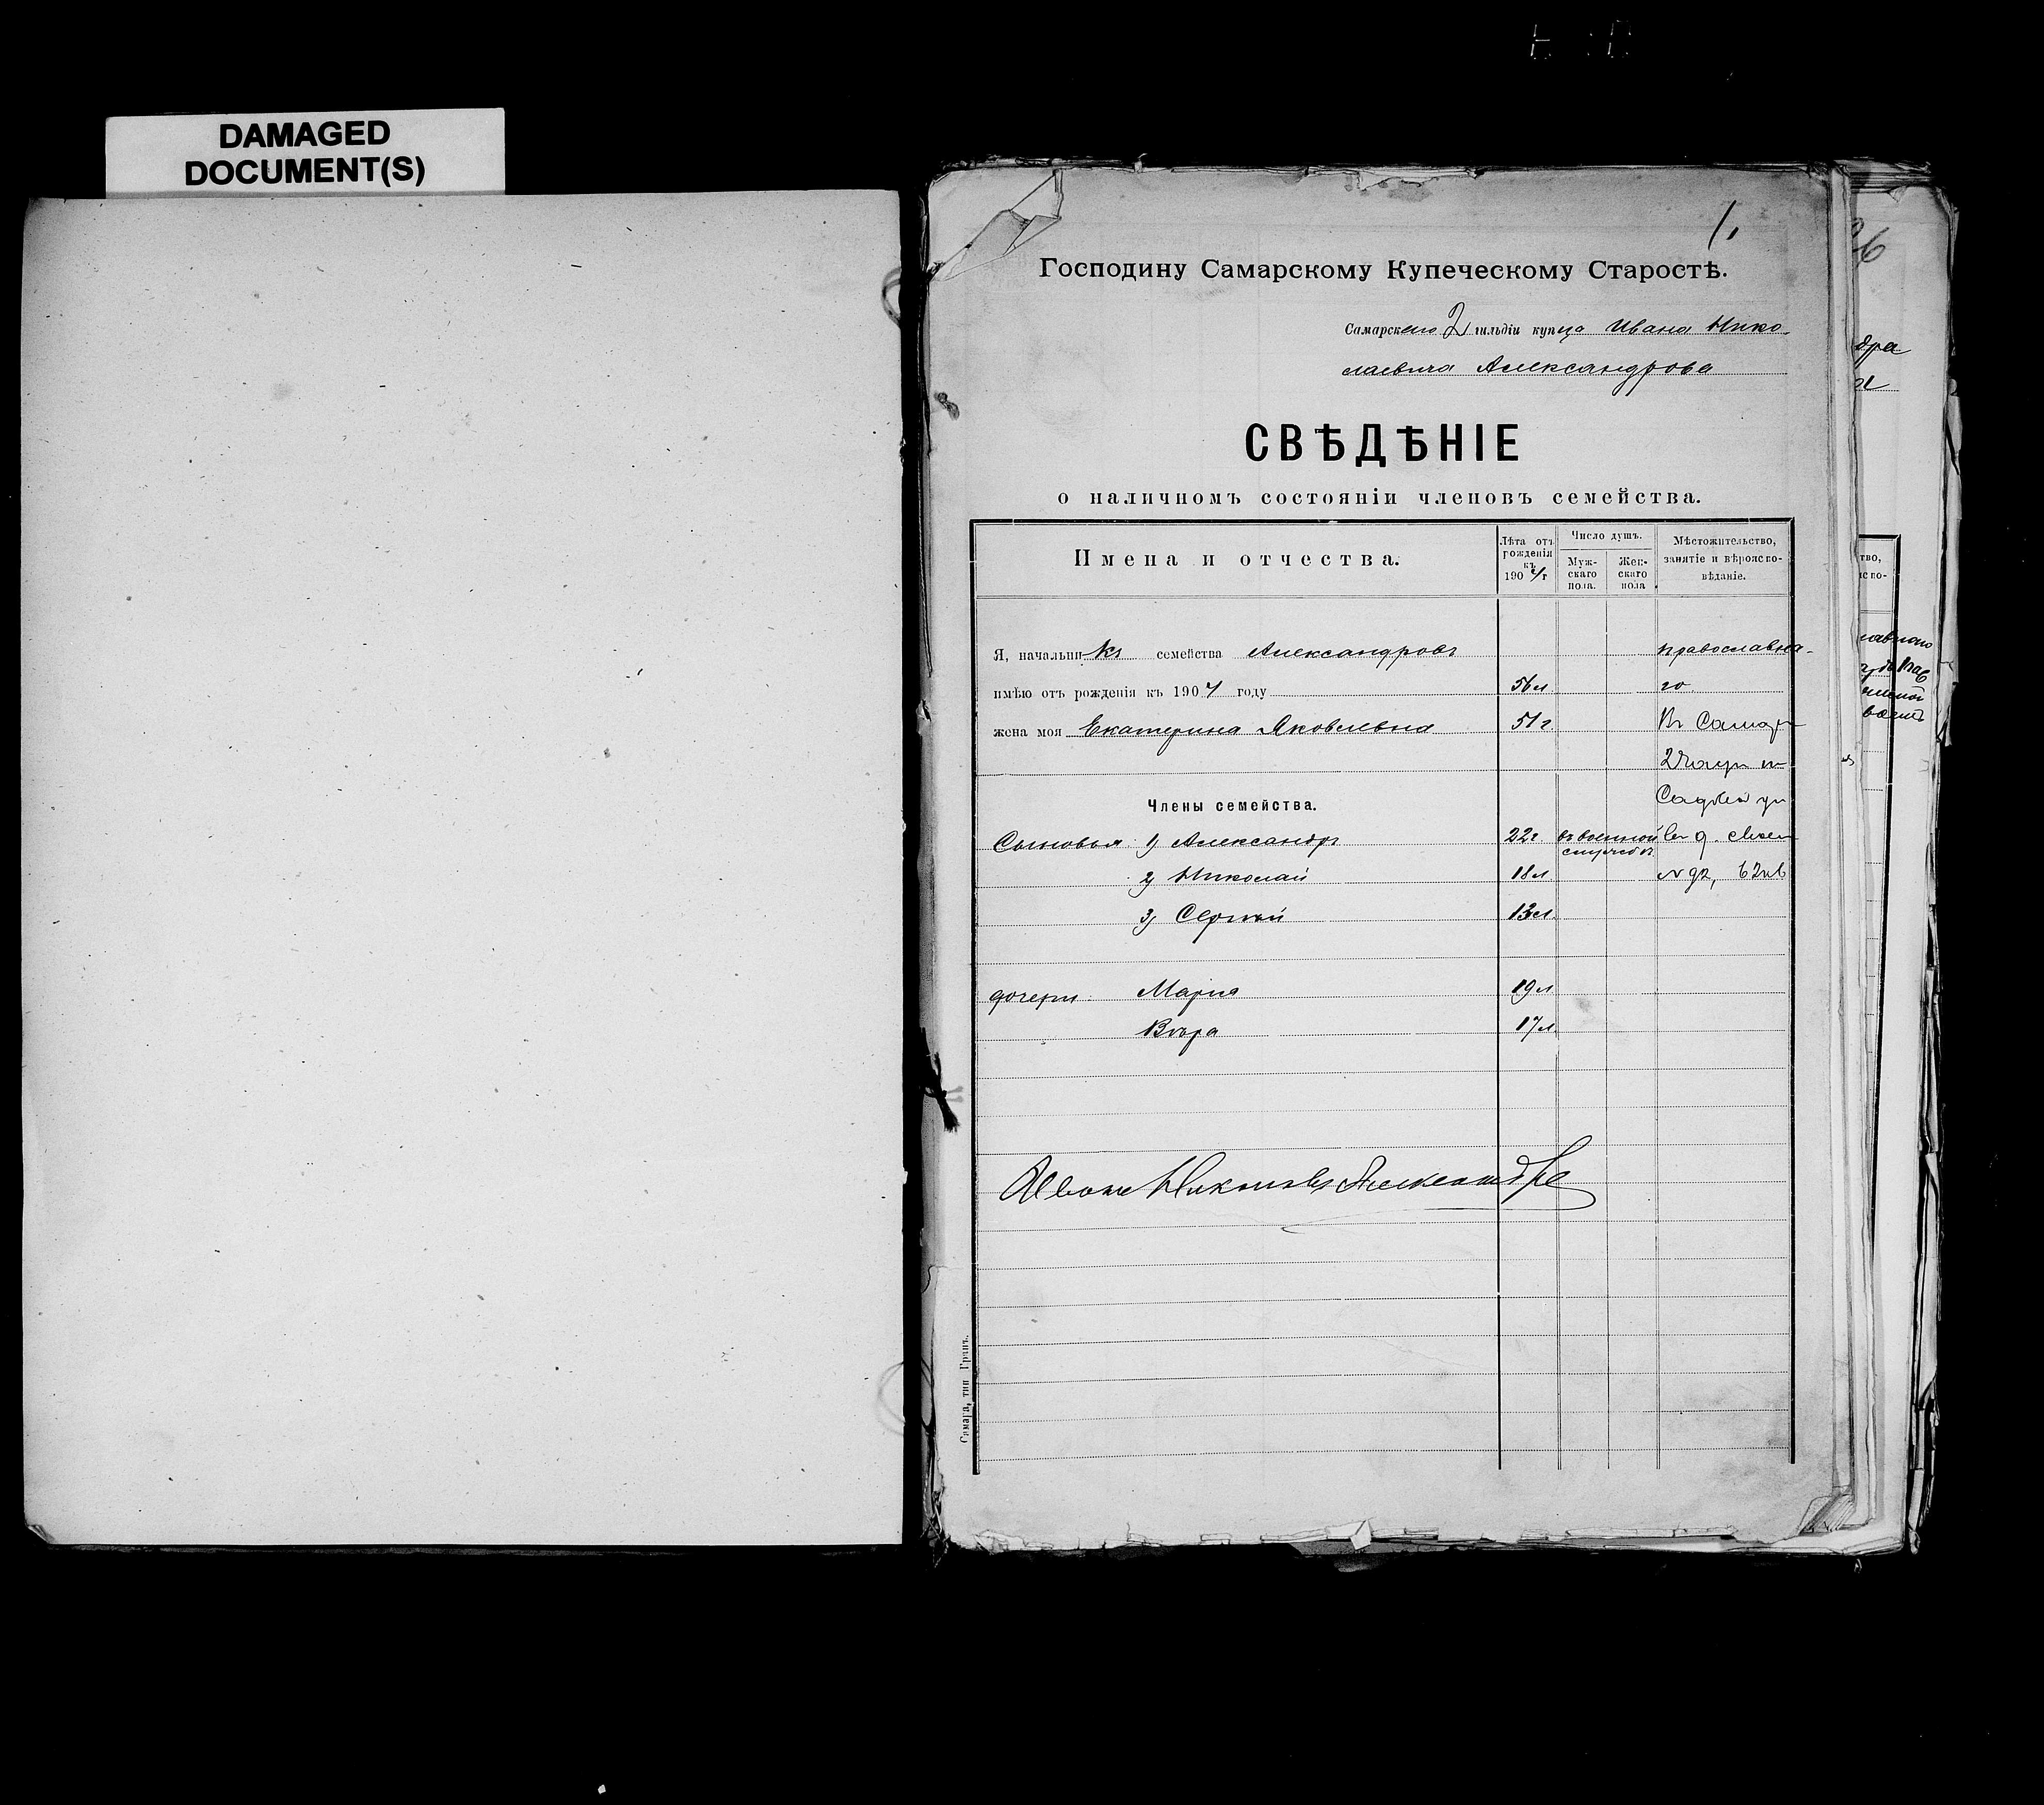 DAMAGED
DOCUMENT(S)
1,
Господину Самарскому Купеческому Старостѣ.
Самарскаго 2 гильдіи купца Ивана Нико-
лаевича Александрова
СВѢДѢНІЕ
о наличномъ состояніи членовъ семейства.
Имена и отчества.
Лѣта отъ рожденія къ 1904 г
Число душъ.
Муж-скаго пола.
Жен-скаго пола
Мѣстожительство, занятіе и вѣроиспо-вѣданіе.
Я, начальникъ семейства Александровъ православна-
имѣю отъ рожденія къ 1904 году 56 л го
жена моя Екатерина Яковлевна 51 г. Въ Самар
2 части
Члены семейства.
Сыновья: 1) Александръ 22 г. въ военной службѣ
2) Николай 18 л.
3) Сергѣй 13 л.
дочери: Марія 19 л
Вѣра 17 л.
Иванъ Николаевъ Александро
Самара, тип Гранъ.